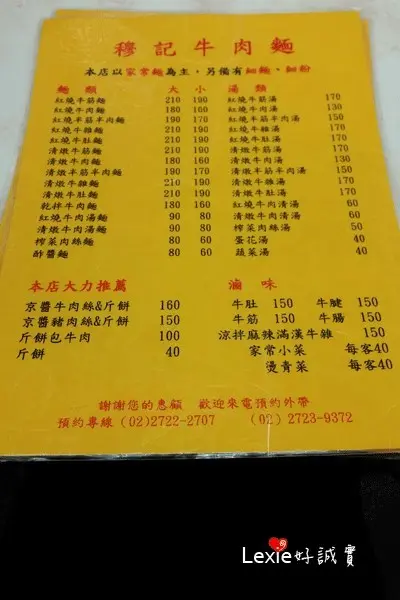 穆記牛肉麵
本店以家常麵為主，另備有細麵、細粉
麵類 大 小
紅燒牛筋麵 210 190
紅燒牛肉麵 180 160
紅燒半筋半肉麵 190 170
紅燒牛雜麵 210 190
紅燒牛肚麵 210 190
清燉牛筋麵 210 190
清燉牛肉麵 180 160
清燉半筋半肉麵 190 170
清燉牛雜麵 210 190
清燉牛肚麵 210 190
乾拌牛肉麵 180 160
紅燒牛肉湯麵 90 80
清燉牛肉湯麵 90 80
榨菜肉絲麵 80 60
酢醬麵 80 60
湯類
紅燒牛筋湯 170
紅燒牛肉湯 130
紅燒半筋半肉湯 150
紅燒牛雜湯 170
紅燒牛肚湯 170
清燉牛筋湯 170
清燉牛肉湯 130
清燉半筋半肉湯 150
清燉牛雜湯 170
清燉牛肚湯 170
紅燒牛肉清湯 60
清燉牛肉清湯 60
榨菜肉絲湯 50
蛋花湯 40
蔬菜湯 40
本店大力推薦
京醬牛肉絲&斤餅 160
京醬豬肉絲&斤餅 150
斤餅包牛肉 100
斤餅 40
滷味
牛肚 150 牛腱 150
牛筋 150 牛腸 150
涼拌麻辣滿漢牛雜 150
家常小菜 每客40
燙青菜 每客40
謝謝您的惠顧 歡迎來電預約外帶
預約專線 (02)2722-2707 (02) 2723-9372
Lexie好誠實